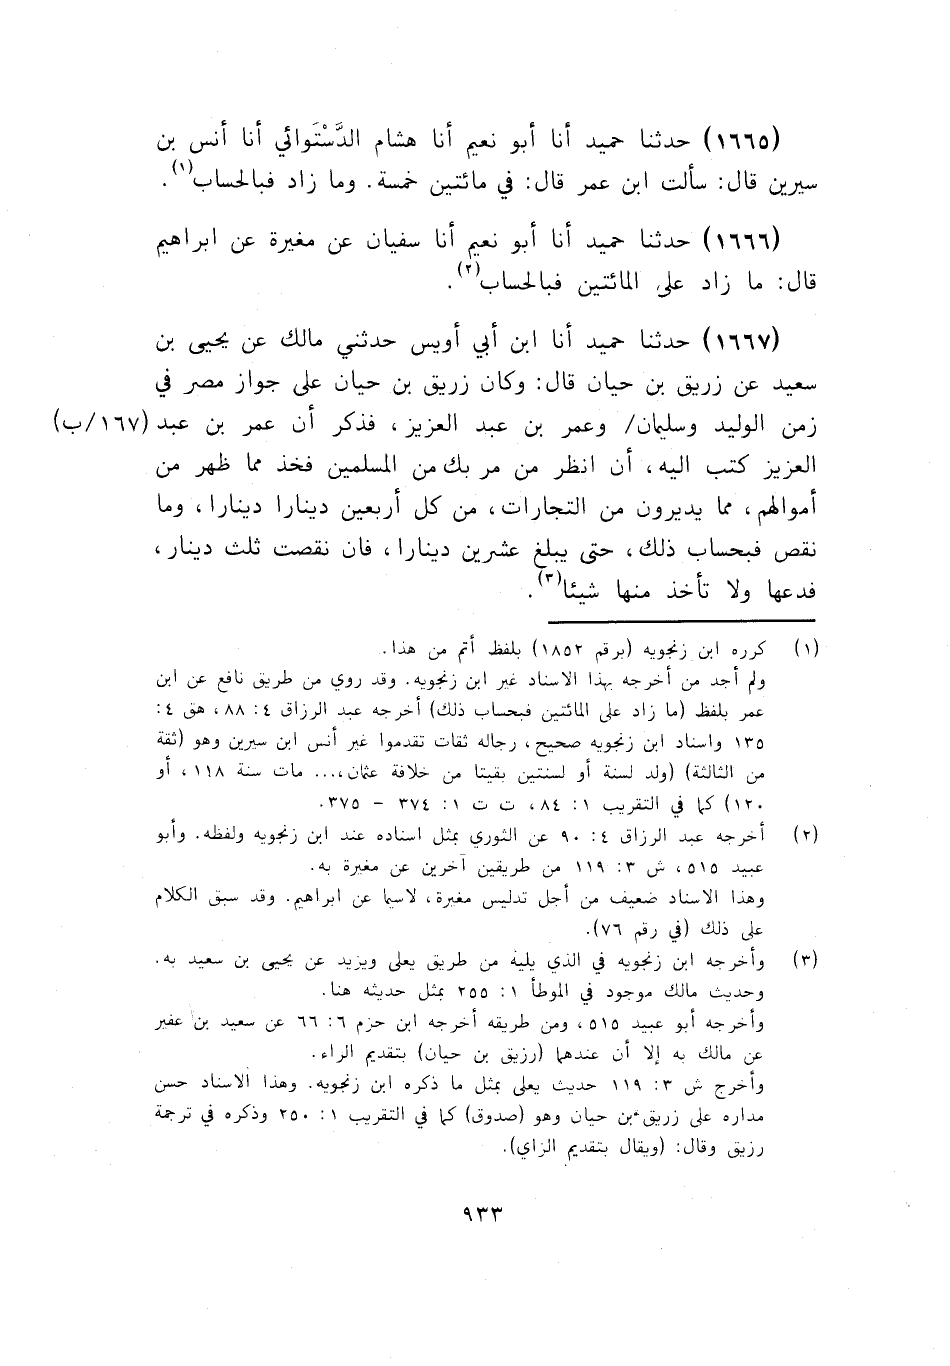 (١٦٦٥) حدثنا حميد أنا أبو نعيم أنا هشام الدَّسْتَوائي أنا أنس بن
سيرين قال: سألت ابن عمر قال: في مائتين خمسة. وما زاد فبالحساب(١).
(١٦٦٦) حدثنا حميد أنا أبو نعيم أنا سفيان عن مغيرة عن ابراهيم
قال: ما زاد على المائتين فبالحساب(٢).
(١٦٦٧) حدثنا حميد أنا ابن أبي أويس حدثني مالك عن يحيى بن
سعيد عن زريق بن حيان قال: وكان زريق بن حيان على جواز مصر في
زمن الوليد وسليمان/ وعمر بن عبد العزيز، فذكر أن عمر بن عبد (١٦٧/ب)
العزيز كتب اليه، أن انظر من مر بك من المسلمين فخذ مما ظهر من
أموالهم، مما يديرون من التجارات، من كل أربعين دينارا دينارا، وما
نقص فبحساب ذلك، حتى يبلغ عشرين دينارا، فان نقصت ثلث دينار،
فدعها ولا تأخذ منها شيئا(٣).
(١) كرره ابن زنجويه (برقم ١٨٥٢) بلفظ أتم من هذا.
ولم أجد من أخرجه بهذا الاسناد غير ابن زنجويه. وقد روي من طريق نافع عن ابن
عمر بلفظ (ما زاد على المائتين فبحساب ذلك) أخرجه عبد الرزاق ٤: ٨٨، هق ٤:
١٣٥ واسناد ابن زنجويه صحيح، رجاله ثقات تقدموا غير أنس ابن سيرين وهو (ثقة
من الثالثة) (ولد لسنة أو لسنتين بقيتا من خلافة عثمان،... مات سنة ١١٨، أو
١٢٠) كما في التقريب ١: ٨٤، ت ت ١: ٣٧٤ - ٣٧٥.
(٢) أخرجه عبد الرزاق ٤: ٩٠ عن الثوري بمثل اسناده عند ابن زنجويه ولفظه. وأبو
عبيد ٥١٥، ش ٣: ١١٩ من طريقين آخرين عن مغيرة به.
وهذا الاسناد ضعيف من أجل تدليس مغيرة، لاسيما عن ابراهيم. وقد سبق الكلام
على ذلك (في رقم ٧٦).
(٣) وأخرجه ابن زنجويه في الذي يليه من طريق يعلى ويزيد عن يحيى بن سعيد به.
وحديث مالك موجود في الموطأ ١: ٢٥٥ بمثل حديثه هنا.
وأخرجه أبو عبيد ٥١٥، ومن طريقه أخرجه ابن حزم ٦: ٦٦ عن سعيد بن عفير
عن مالك به إلا أن عندهما (رزيق بن حيان) بتقديم الراء.
وأخرج ش ٣: ١١٩ حديث يعلى بمثل ما ذكره ابن زنجويه. وهذا الاسناد حسن
مداره على زريق بن حيان وهو (صدوق) كما في التقريب ١: ٢٥٠ وذكره في ترجمة
رزيق وقال: (ويقال بتقديم الزاي).
٩٣٣